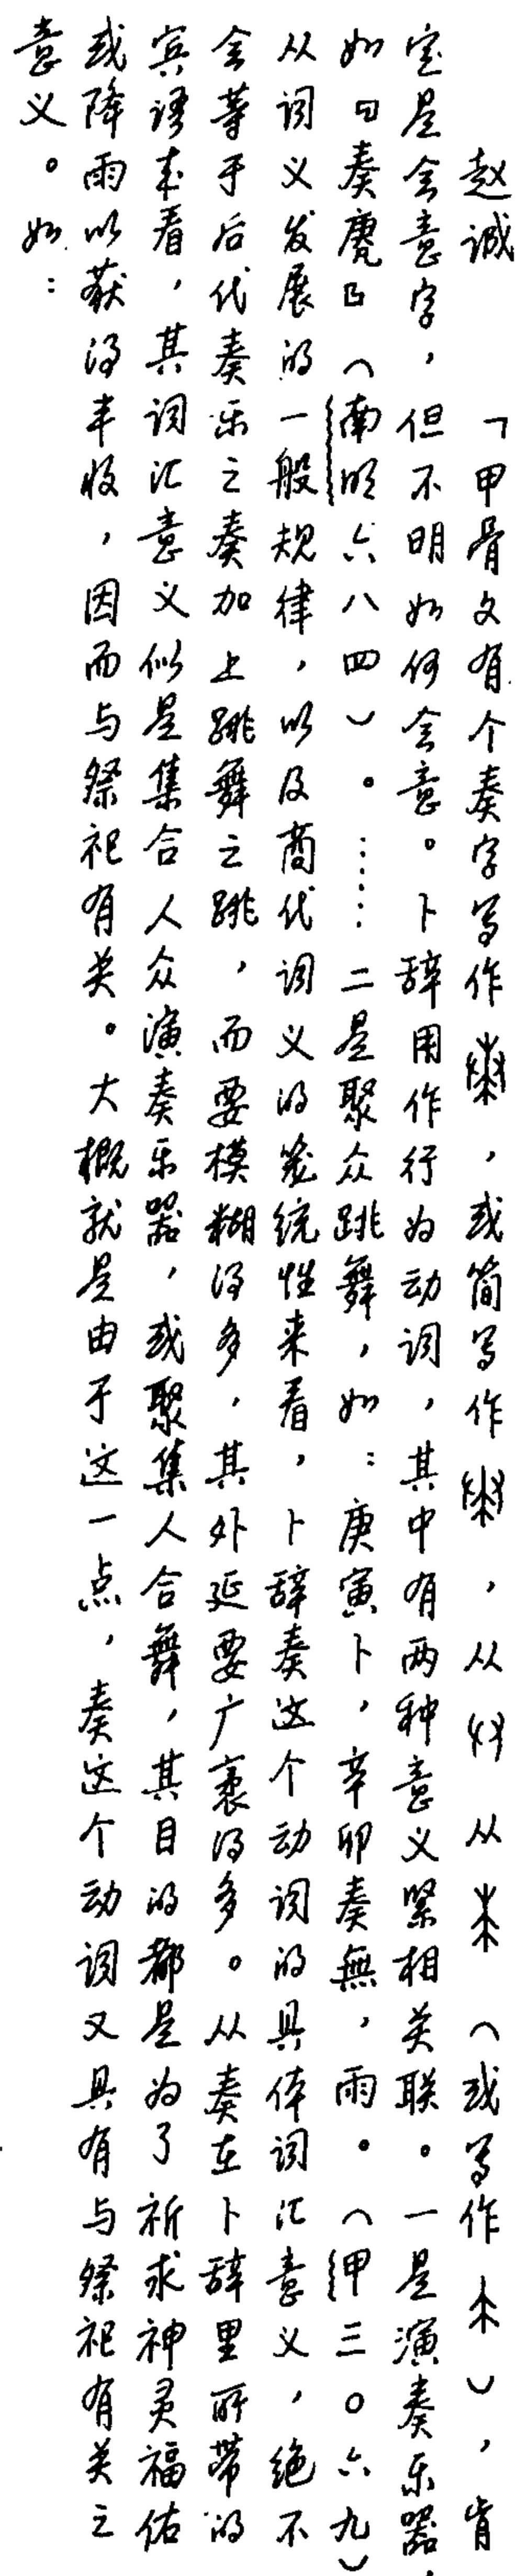 赵诚 「甲骨文有个奏字写作，或简写作，从从（或写作），肯
定是会意字，但不明如何会意。卜辞用作行为动词，其中有两种意义紧相关联。一是演奏乐器，
如『奏庸』（南明六八四）。……二是聚众跳舞，如：庚寅卜，辛卯奏無，雨。（甲三〇六九）
从词义发展的一般规律，以及商代词义的笼统性来看，卜辞奏这个动词的具体词汇意义，绝不
会等于后代奏乐之奏加上跳舞之跳，而要模糊得多，其外延要广袤得多。从奏在卜辞里所带的
宾语来看，其词汇意义似是集合人众演奏乐器，或聚集人合舞，其目的都是为了祈求神灵福佑
或降雨以获得丰收，因而与祭祀有关。大概就是由于这一点，奏这个动词又具有与祭祀有关之
意义。如：